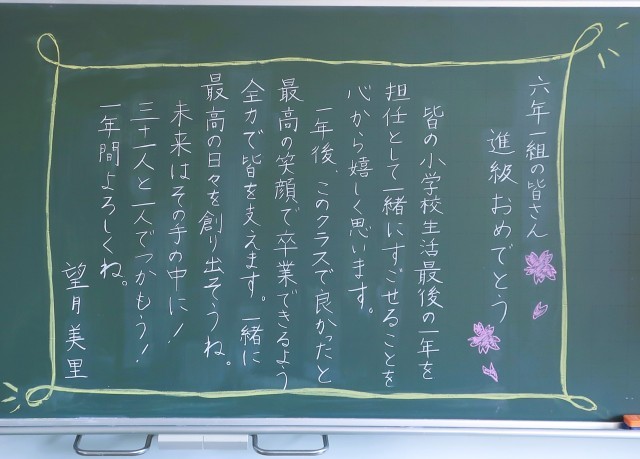 六年一組の皆さん
進級おめでとう
皆の小学校生活最後の一年を
担任として一緒にすごせることを
心から嬉しく思います。
一年後、このクラスで良かったと
最高の笑顔で卒業できるよう
全力で皆を支えます。一緒に
最高の日々を創り出そうね。
未来はその手の中に！
三十一人と一人でつかもう！
一年間よろしくね。
望月美里